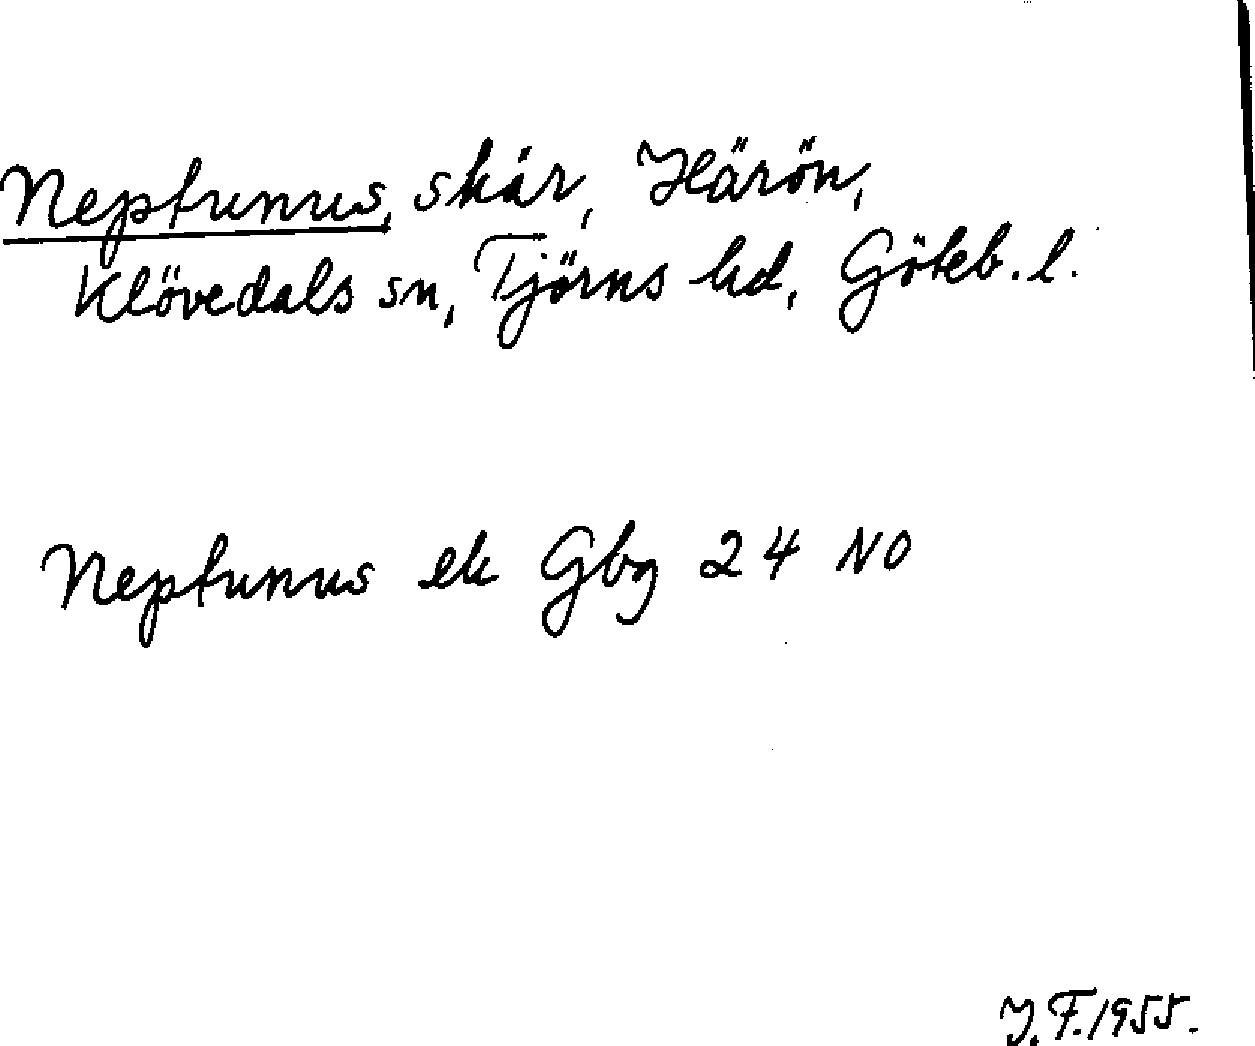 Neptunus, skär, Härön,
Klövedals sn, Tjörns hd, Göteb. l.
Neptunus ek Gbg 24 NO
J. F. 1955.